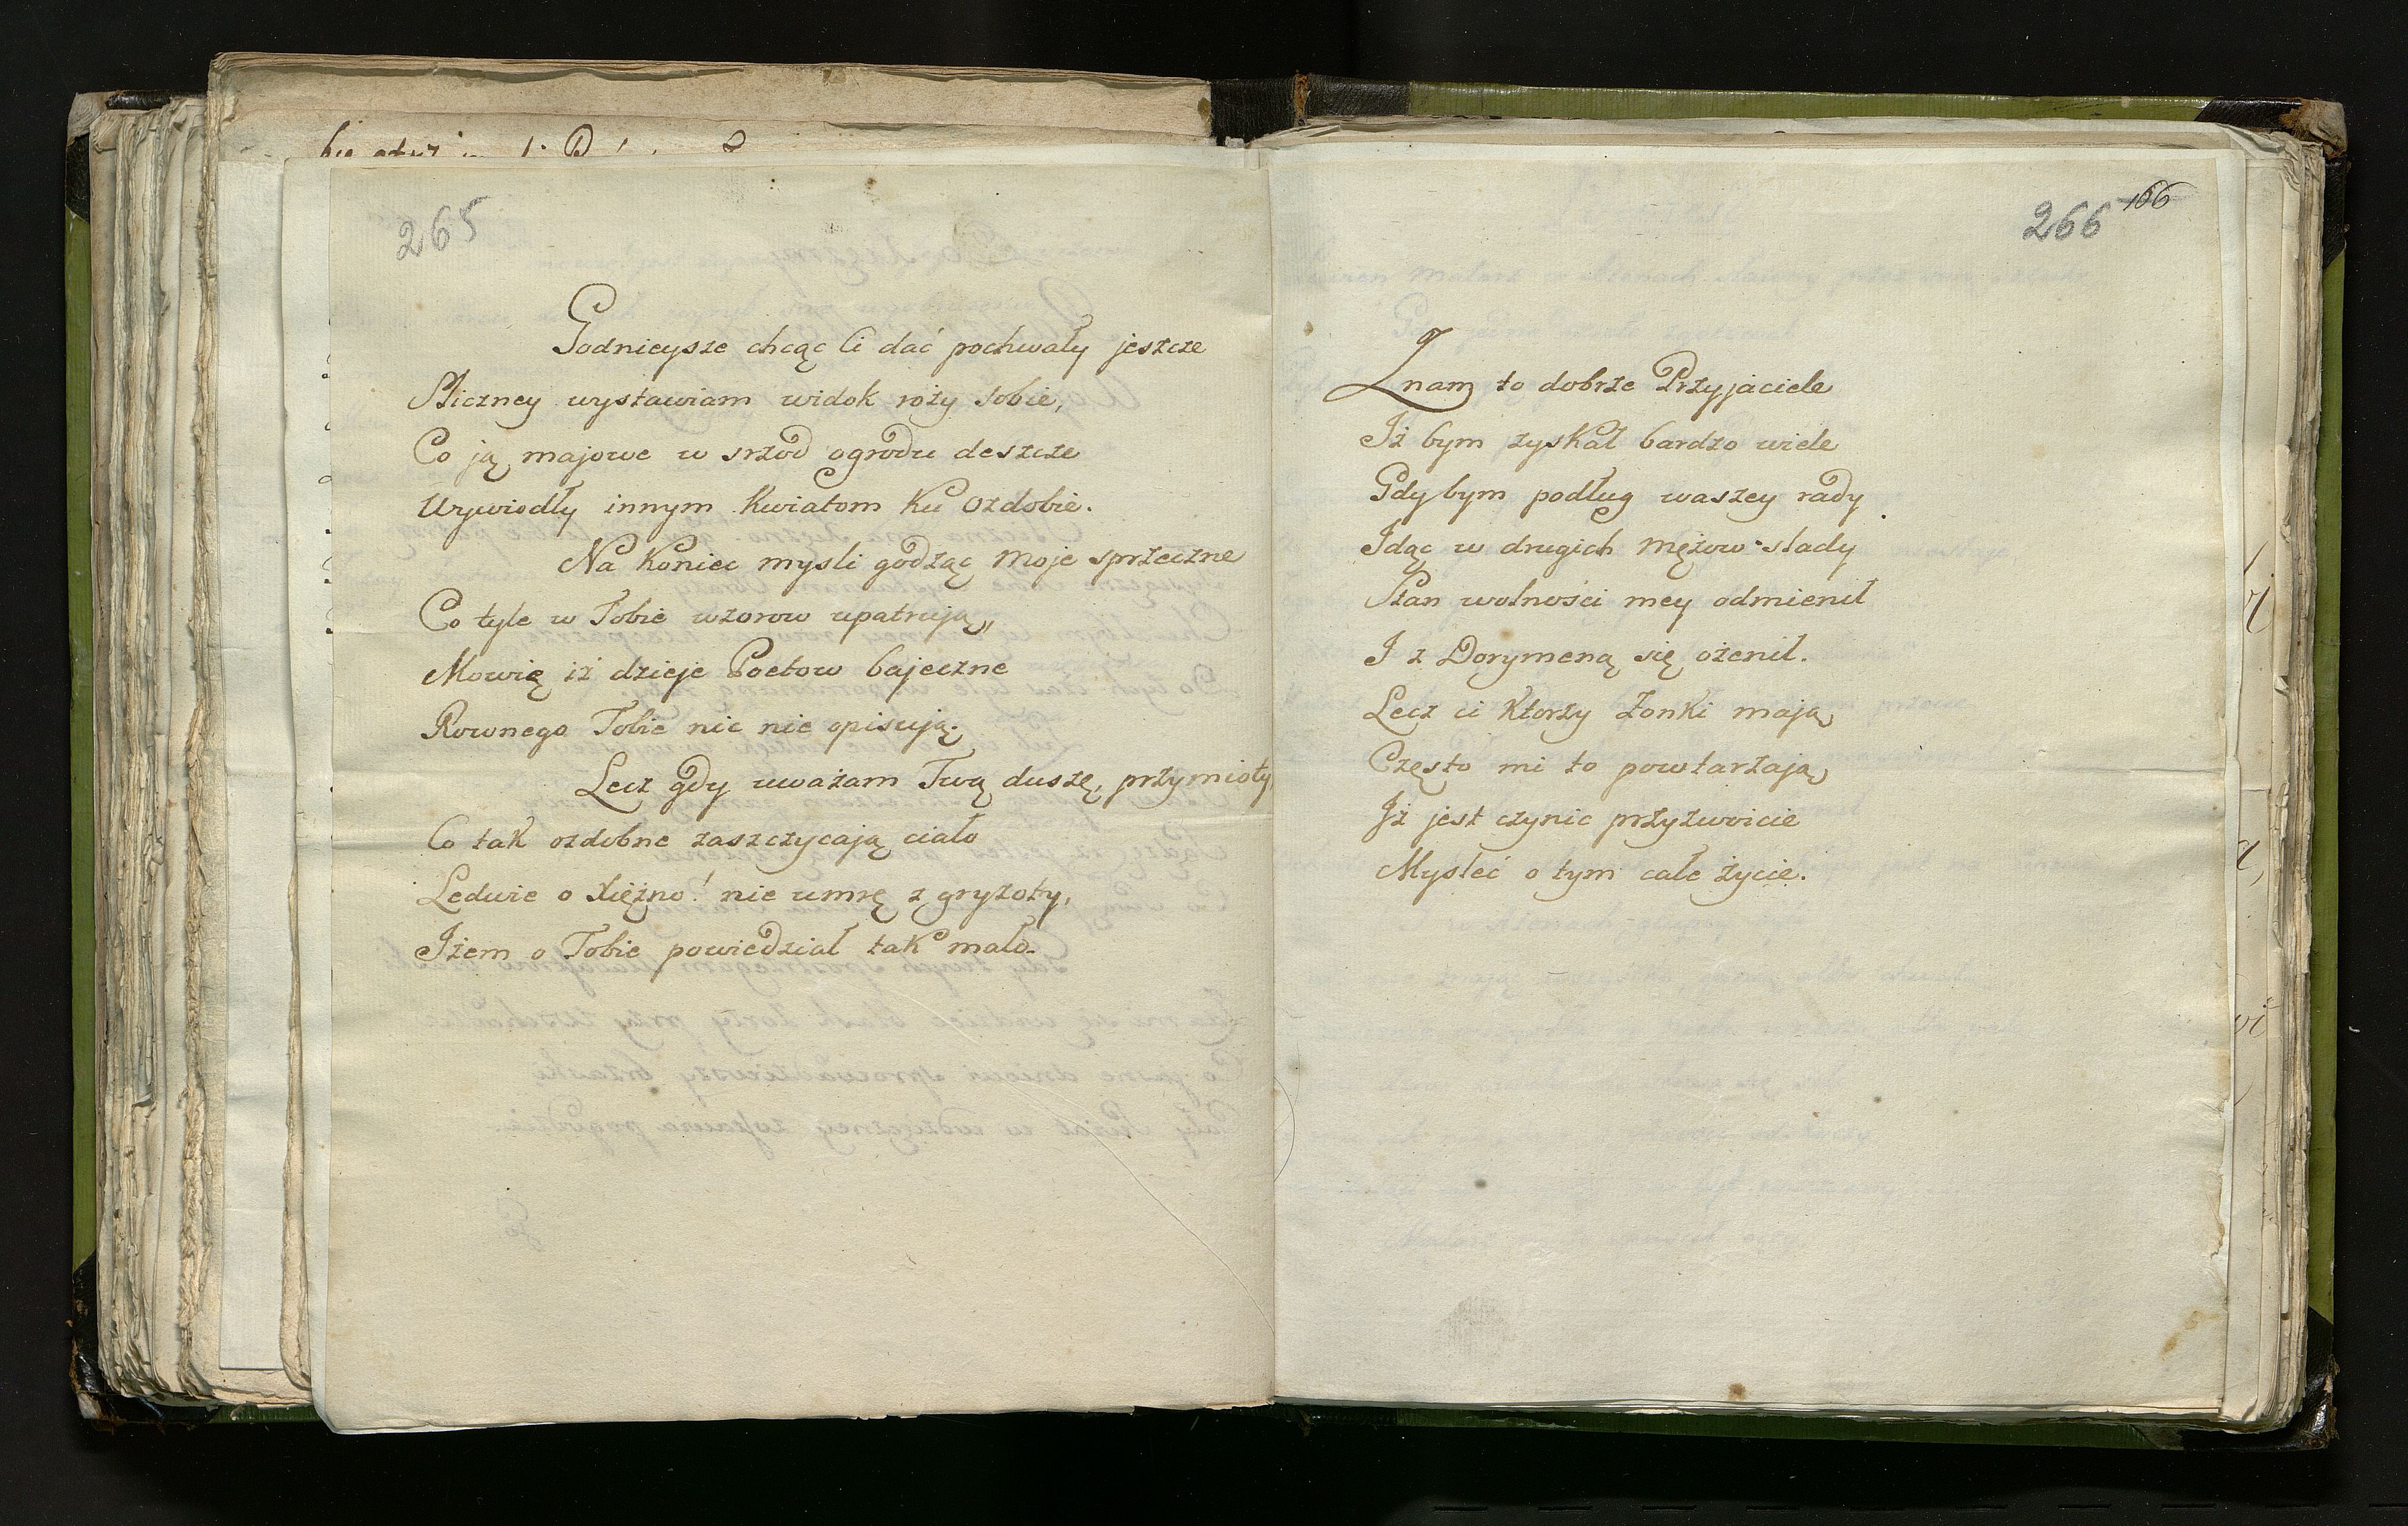 265
Godnieysze chcąc Ci dać pochwały jeszcze
Sliczney wystawiam widok roży sobie,
Co ją majowe w srzod ogrodu deszcze
Wywiodły innym kwiatom ku ozdobie.
Na koniec mysli godząc moje sprzeczne
Co tyle w Tobie wzorow upatrują,
Mowię iż dzieje Poetow bajeczne
Rownego Tobie nic nie opisują.
Lecz gdy uważam Twą duszę, przymioty,
Co tak ozdobne zaszczycają ciało
Ledwie o Xiężno! nie umrę z gryzoty,
Iżem o Tobie powiedział tak mało.
266 166
Znam to dobrze Przyjaciele
Iż bym zyskał bardzo wiele
Gdy bym podług waszey rady
Idąc w drugich mężow slady
Stan wolności mey odmienił
I z Dorymeną się ożenił.
Lecz ci ktorzy Żonki mają,
Często mi to powtarzają,
Iż jest czynic przyzwoicie
Mysleć o tym całe życie.